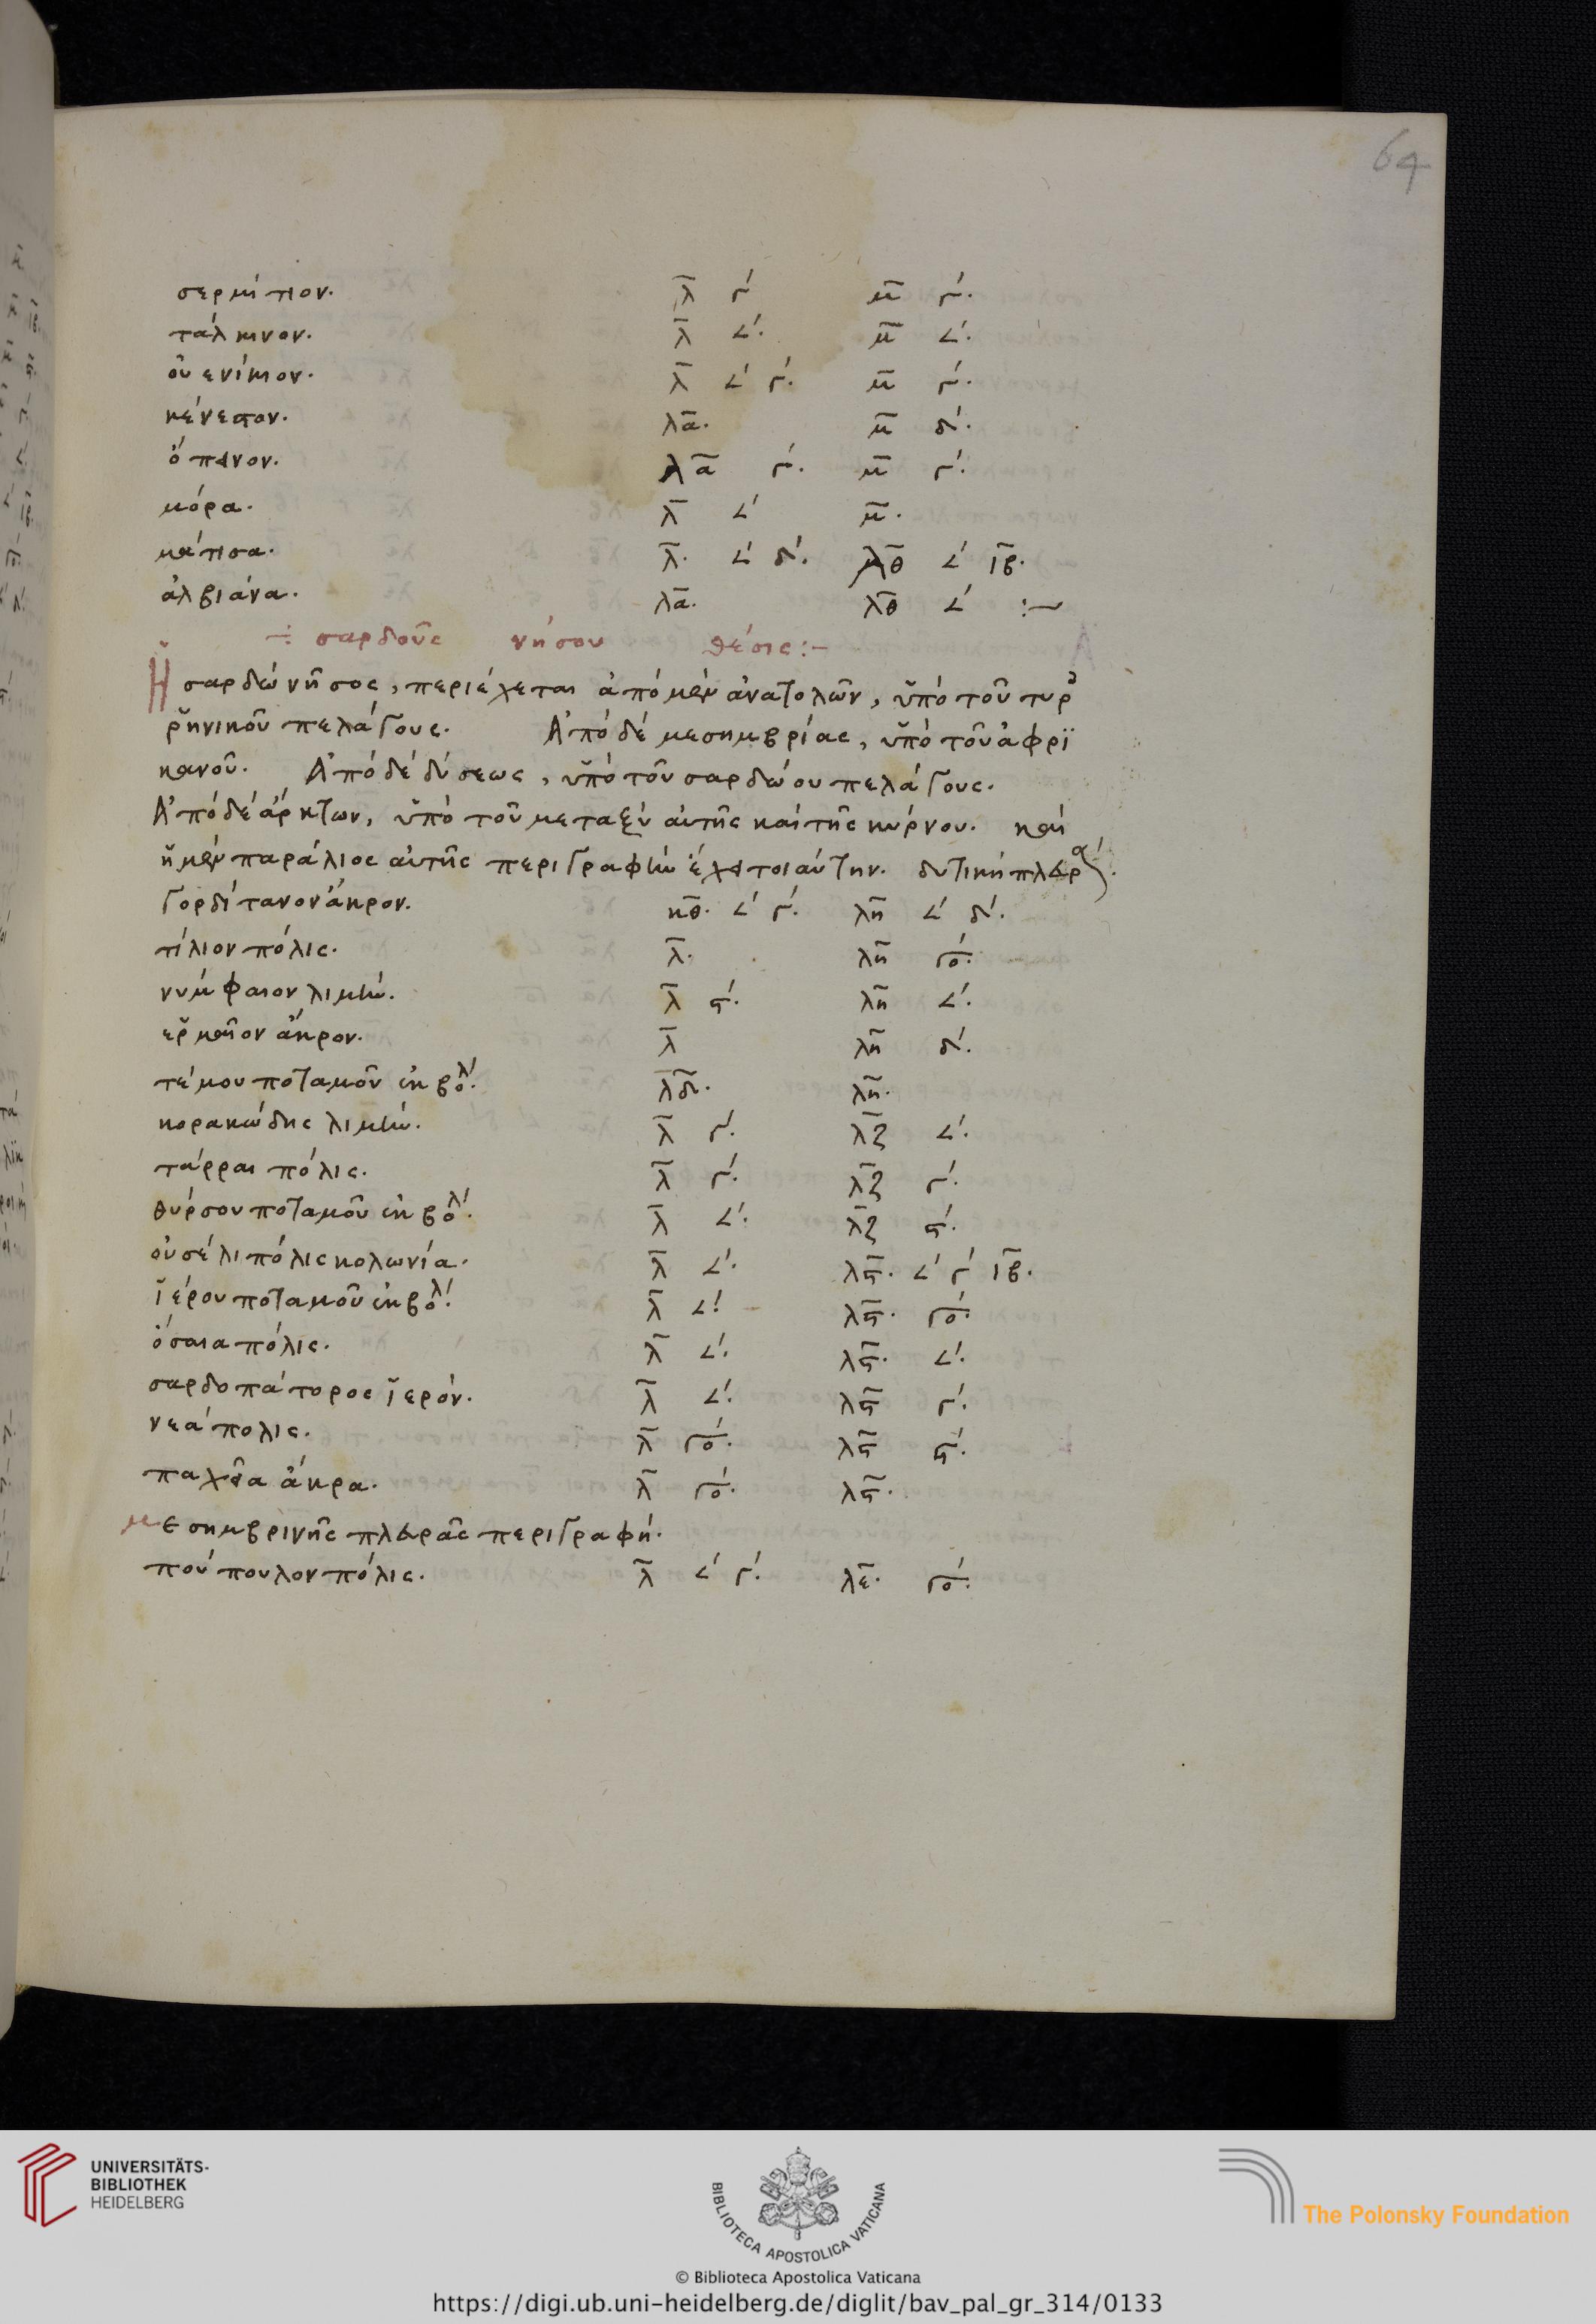 64
σερμίτιον. λ̅ γ´ μ̅ γ´.
τάλκινον. λ̅ 𐅵´. μ̅ 𐅵´.
οὐενίκιον. λ̅ 𐅵´ γ´. μ̅ γ´.
κένεστον. λα̅. μ̅ δ´.
ὄπινον. λα̅ γ´. μ̅ γ´.
μόρα. λ̅ 𐅵´ μ̅.
μάτισα. λ̅. 𐅵´ δ´. λθ̅ 𐅵´ ιβ̅.
ἀλβιάνα. λα̅. λθ̅ 𐅵´ :~
÷ σαρδοῦς νήσου θέσις :~
Ἡ σαρδὼ νῆσος, περιέχεται ἀπὸ μὲν ἀνατολῶν, ὑπὸ τοῦ τυρ
ῥηνικοῦ πελάγους. Ἀπὸ δὲ μεσημβρίας, ὑπὸ τοῦ ἀφρϊ
κανοῦ. Ἀπὸ δὲ δύσεως, ὑπὸ τοῦ σαρδώου πελάγους.
Ἀπὸ δὲ ἄρκτων, ὑπὸ τοῦ μεταξὺ αὐτῆς καὶ τῆς κύρνου. καὶ
ἡ μὲν παράλιος αὐτῆς περιγραφὴν ἔχει τοιαύτην. δυτικὴ πλευρά.
γορδίτανον ἄκρον. κθ̅. 𐅵´ γ´. λη̅ 𐅵´ δ´.
τίλιον πόλις. λ̅. λη̅ γο´.
νυμφαιον λιμήν. λ̅ ϛ´. λη̅ 𐅵´.
ἑρμαῖον ἄκρον. λ̅ λη̅ δ´.
τέμου ποταμοῦ ἐκβολ´. λδ̅. λη̅.
κορακώδης λιμήν. λ̅ γ´. λζ̅ 𐅵´.
τάρραι πόλις. λ̅ γ´. λζ̅ γ´.
θύρσου ποταμοῦ ἐκβολ´. λ̅ 𐅵´. λζ̅ ϛ´.
οὐσέλι πόλις κολωνία. λ̅ 𐅵´. λϛ̅. 𐅵´ γ´ ιβ̅.
ἱέρου ποταμοῦ ἐκβολ´. λ̅ 𐅵´. λϛ̅. γο´.
ὄσαια πόλις. λ̅ 𐅵´. λϛ̅. 𐅵´.
σαρδοπάτορος ἱερόν. λ̅ 𐅵´. λϛ̅ γ´.
νεάπολις. λ̅ γο´. λϛ̅ ϛ´.
παχεῖα ἄκρα. λ̅ γο´. λϛ̅.
μεσημβρινῆς πλευρᾶς περιγραφή.
πούπουλον πόλις. λ̅ 𐅵´ γ´. λε̅. γο´.
UNIVERSITÄTS-
BIBLIOTHEK
HEIDELBERG
BIBLIOTECA APOSTOLICA VATICANA
The Polonsky Foundation
© Biblioteca Apostolica Vaticana
https://digi.ub.uni-heidelberg.de/diglit/bav_pal_gr_314/0133